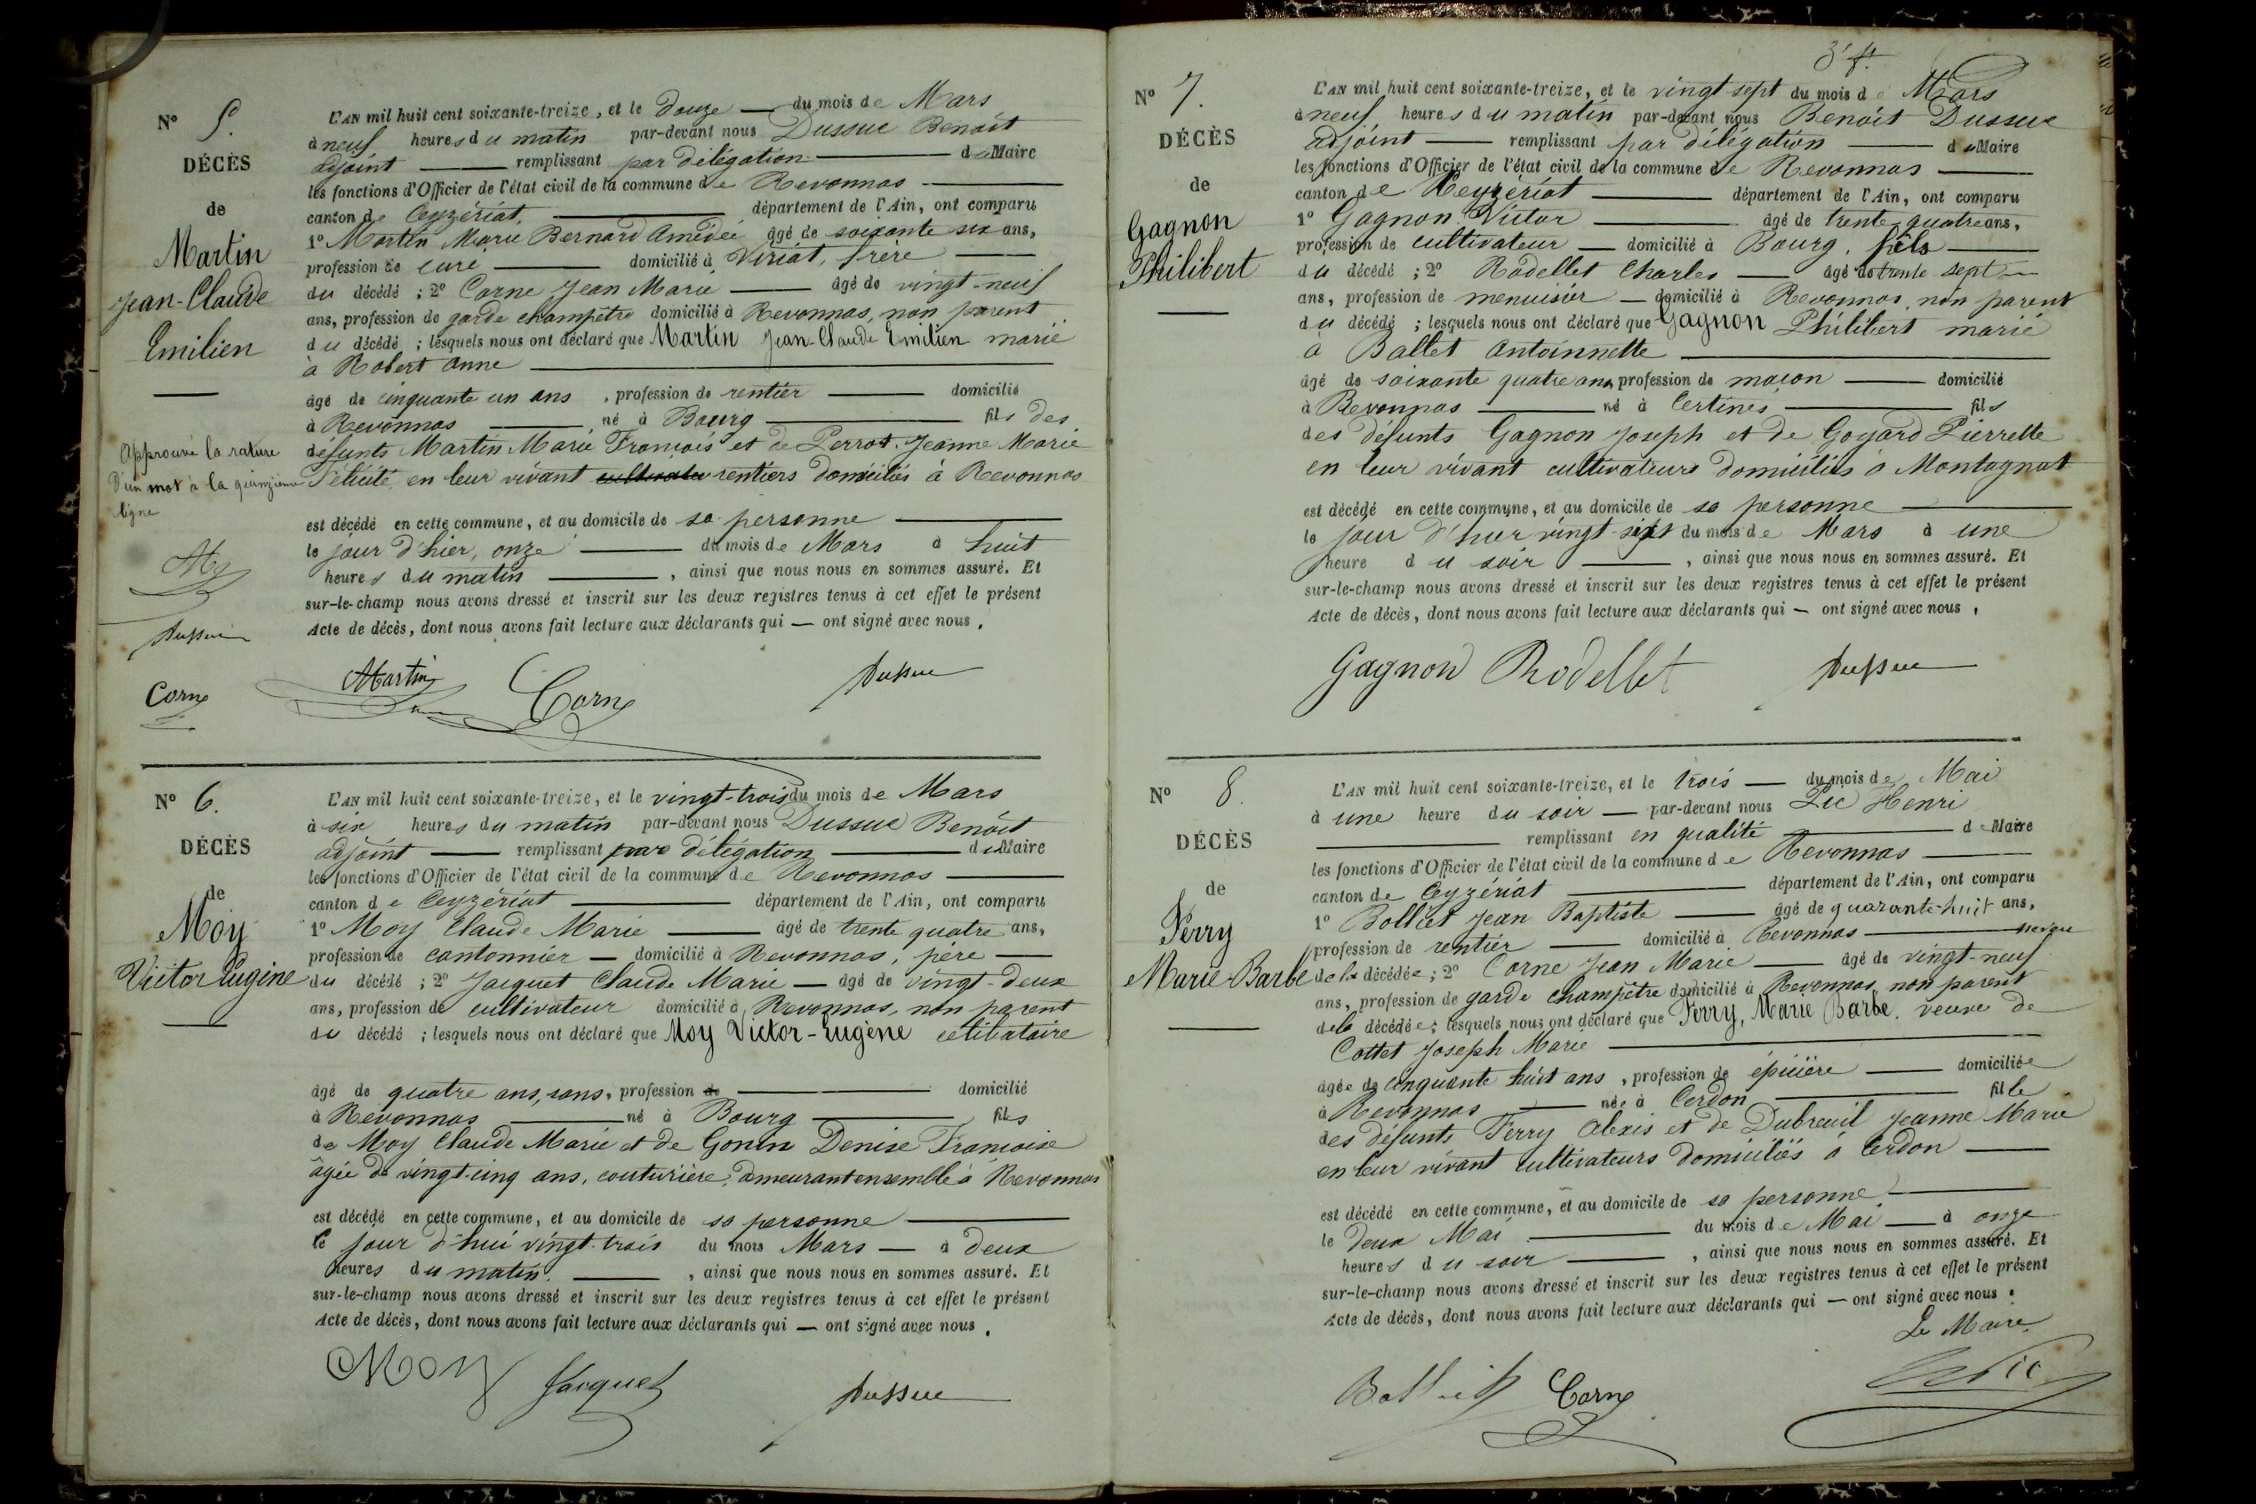 N° 5.
DÉCÈS
de
Martin
Jean-Claude
Emilien
approuvé la rature
d'un mot à la quinzième
ligne
Dussuc
Corne
L'AN mil huit cent soixante-treize, et le douze — du mois de Mars
à neuf heures du matin par-devant nous Dussuc Benoit
adjoint — remplissant par délégation — du Maire
les fonctions d'Officier de l'état civil de la commune de Revonnas —
canton de Ceyzériat, — département de l'Ain, ont comparu
1° Martin Marie Bernard Amédée âgé de soixante six ans,
profession de curé — domicilié à Viriat, frère —
du décédé ; 2° Corne Jean Marie — âgé de vingt-neuf
ans, profession de garde champêtre domicilié à Revonnas, non parent
du décédé ; lesquels nous ont déclaré que Martin Jean-Claude Emilien marié
à Robert Anne —
âgé de cinquante un ans , profession de rentier — domicilié
à Revonnas — né à Bourg — fils des
défunts Martin Marie François et de Perrot Jeanne Marie
Félicité en leur vivant cultivateur rentiers domiciliés à Revonnas
est décédé en cette commune, et au domicile de sa personne —
le jour d'hier, onze — du mois de Mars à huit
heures du matin — , ainsi que nous nous en sommes assuré. Et
sur-le-champ nous avons dressé et inscrit sur les deux registres tenus à cet effet le présent
Acte de décès, dont nous avons fait lecture aux déclarants qui — ont signé avec nous .
Martin Corne Dussuc
N° 6.
DÉCÈS
de
Moy
Victor Eugène
L'AN mil huit cent soixante-treize, et le vingt-trois du mois de Mars
à six heures du matin par-devant nous Dussuc Benoit
adjoint — remplissant par délégation — du Maire
les fonctions d'Officier de l'état civil de la commune de Revonnas —
canton de Ceyzériat — département de l'Ain, ont comparu
1° Moy Claude Marie — âgé de trente quatre ans,
profession de cantonnier — domicilié à Revonnas, père —
du décédé ; 2° Jacquet Claude Marie — âgé de vingt-deux
ans, profession de cultivateur domicilié à Revonnas, non parent
du décédé ; lesquels nous ont déclaré que Moy Victor-Eugène célibataire
âgé de quatre ans, sans, profession de — domicilié
à Revonnas — né à Bourg — fils
de Moy Claude Marie et de Gonin Denise Françoise
âgée de vingt-cinq ans, couturière, demeurant ensemble à Revonnas
est décédé en cette commune, et au domicile de sa personne —
le jour d'hui vingt-trois du mois Mars — à deux
heures du matin. — , ainsi que nous nous en sommes assuré. Et
sur-le-champ nous avons dressé et inscrit sur les deux registres tenus à cet effet le présent
Acte de décès, dont nous avons fait lecture aux déclarants qui — ont signé avec nous .
Moy Jacquet Dussuc
N° 7.
DÉCÈS
de
Gagnon
Philibert
L'AN mil huit cent soixante-treize, et le vingt-sept du mois de Mars
à neuf heures du matin par-devant nous Benoit Dussuc
adjoint — remplissant par délégation — du Maire
les fonctions d'Officier de l'état civil de la commune de Revonnas —
canton de Ceyzériat — département de l'Ain, ont comparu
1° Gagnon Victor — âgé de trente quatre ans,
profession de cultivateur — domicilié à Bourg, fils —
du décédé ; 2° Rodellet Charles — âgé de trente sept —
ans, profession de menuisier — domicilié à Revonnas, non parent
du décédé ; lesquels nous ont déclaré que Gagnon Philibert marié
à Ballet Antoinnette —
âgé de soixante quatre ans, profession de maçon — domicilié
à Revonnas — né à Certines — fils
des défunts Gagnon Joseph et de Goyard Pierrette
en leur vivant cultivateurs domiciliés à Montagnat
est décédé en cette commune, et au domicile de sa personne —
le jour d'hier vingt-six du mois de Mars à une
heure du soir — , ainsi que nous nous en sommes assuré. Et
sur-le-champ nous avons dressé et inscrit sur les deux registres tenus à cet effet le présent
Acte de décès, dont nous avons fait lecture aux déclarants qui — ont signé avec nous .
Gagnon Rodellet Dussuc
N° 8.
DÉCÈS
de
Ferry
Marie-Barbe
L'AN mil huit cent soixante-treize, et le trois — du mois de Mai
à une heure du soir — par-devant nous Pic Henri
— remplissant en qualité — de Maire
les fonctions d'Officier de l'état civil de la commune de Revonnas —
canton de Ceyzériat — département de l'Ain, ont comparu
1° Bolliet Jean Baptiste — âgé de quarante-huit ans,
profession de rentier — domicilié à Revonnas — neveu
de la décédée ; 2° Corne Jean Marie — âgé de vingt-neuf
ans, profession de garde champêtre domicilié à Revonnas non parent
de la décédée ; lesquels nous ont déclaré que Ferry, Marie Barbe, veuve de
Cottet Joseph Marie —
âgée de cinquante huit ans , profession de épicière — domiciliée
à Revonnas — née à Cerdon — fille
des défunts Ferry Alexis et de Dubreuil Jeanne Marie
en leur vivant cultivateurs domiciliés à Cerdon —
est décédé en cette commune, et au domicile de sa personne —
le deux Mai — du mois de Mai — à onze
heures du soir — , ainsi que nous nous en sommes assuré. Et
sur-le-champ nous avons dressé et inscrit sur les deux registres tenus à cet effet le présent
Acte de décès, dont nous avons fait lecture aux déclarants qui — ont signé avec nous .
Le Maire
Bolliet Corne Pic